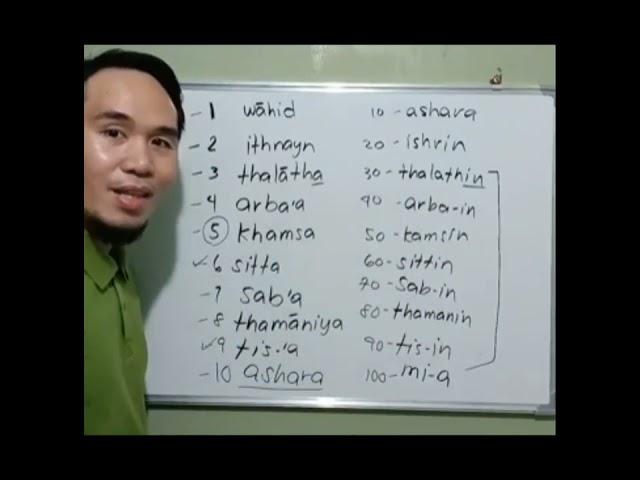 - 1 wāhid
- 2 ithnayn
- 3 thalātha
- 4 arba'a
- 5 khamsa
✓ 6 sitta
- 7 sab'a
- 8 thamāniya
✓ 9 tis-'a
- 10 ashara
10 - ashara
20 - ishrin
30 - thalathin
40 - arba-in
50 - kamsin
60 - sittin
70 - sab-in
80 - thamanin
90 - tis-in
100 - mi-a